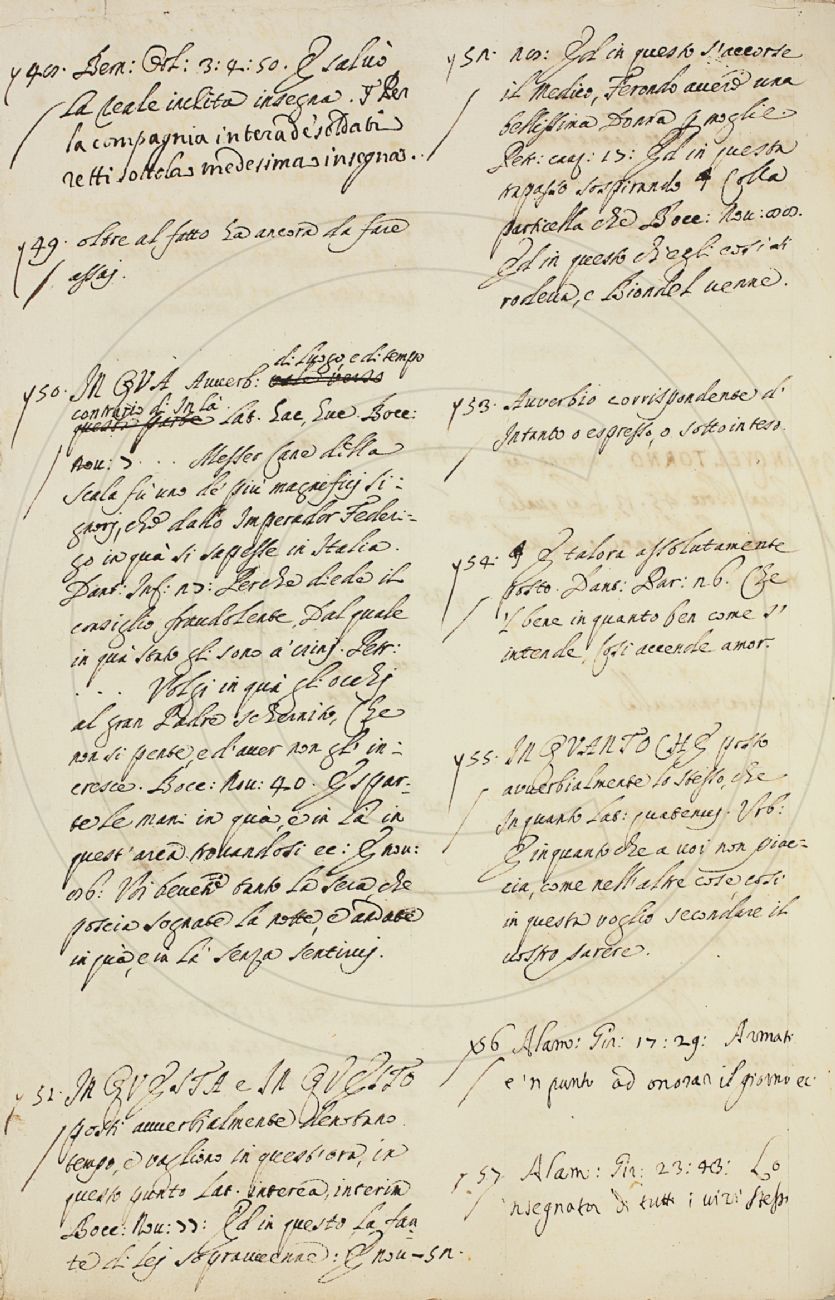 y 48. Bern: Orl: 3: 4: 50. E salvò
la reale inclita insegna. Per
la compagnia intera de' soldati
retti sotto la medesima insegna.
y 49. oltre al fatto ha ancora da fare
assaj.
y 50. IN QVA Avverb: di luogo, e di tempo
contrario di In là Lat. hac, huc Bocc:
Nou: 7. . . . Messer Cane della
Scala fù uno de' piu magnifici si-
gnorj, che dallo Imperador Federi-
go in quà si sapesse in Italia.
Dant: Inf: 27: Perche diede il
consiglio frodolente, Dal quale
in quà stato gli sono a' crinj. Petr:
. . . . Volgi in quà gli occhj
al gran Padre schernito, Che
non si pente, e d'aver non gl' in-
cresce. Bocc: Nou: 40. E spar-
te le mani in quà, e in là in
quest' arca trovandosi ec: E nou:
68: Voi bevete tanto la sera, che
poscia sognate la notte, e andate
in quà, e in là senza sentirvj.
y 51. IN QVESTA e IN QVESTO
posti avverbialmente denotano
tempo, e vagliono in quest'ora, in
questo punto Lat. interea, interim
Bocc: Nou: 77: Ed in questo la fan
te di lej sopravvenne: E nou - 52.
y 52. 28: Ed in questo s'accorse
il Medico, Ferondo avere una
bellissima Donna p moglie
Petr: canz: 17: Ed in questa
trapasso sospirando Colla
particella che Bocc: Nou: 88.
Ed in questo ch'egli così si
rodeva, e Biondel venne.
y 53. Avverbio corrispondente d'
Intanto o espresso, o sottointeso.
y 54. E talora assolutamente
posto. Dant: Par: 26. Che
'l bene in quanto ben come s'
intende, Così accende amor.
y 55. IN QVANTO CHE posto
avverbialmente lo stesso, che
Inquanto Lat: quatenus. Urb:
E inquanto che a voi non piac-
cia, come nell'altre cose, così
in questa voglio secondare il
vostro parere.
y 56 Alam: Gir: 17: 29: Armati
e 'n punto ad onorar il giorno ec
y 57 Alam: Gir: 23: 43: Lo
'nsegnator di tutti i vizi stessi